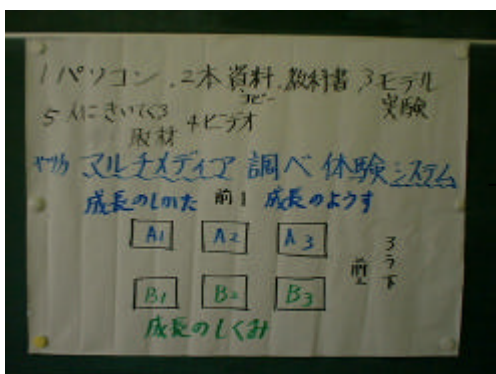 1パソコン、2本資料、教科書、3モデル
コピー
実験
5 人にきいてくる 4ビデオ
取材
マルチメディア調べ体験システム
成長のしかた 前1 成長のようす
A1 A2 A3
B1 B2 B3
成長のしくみ